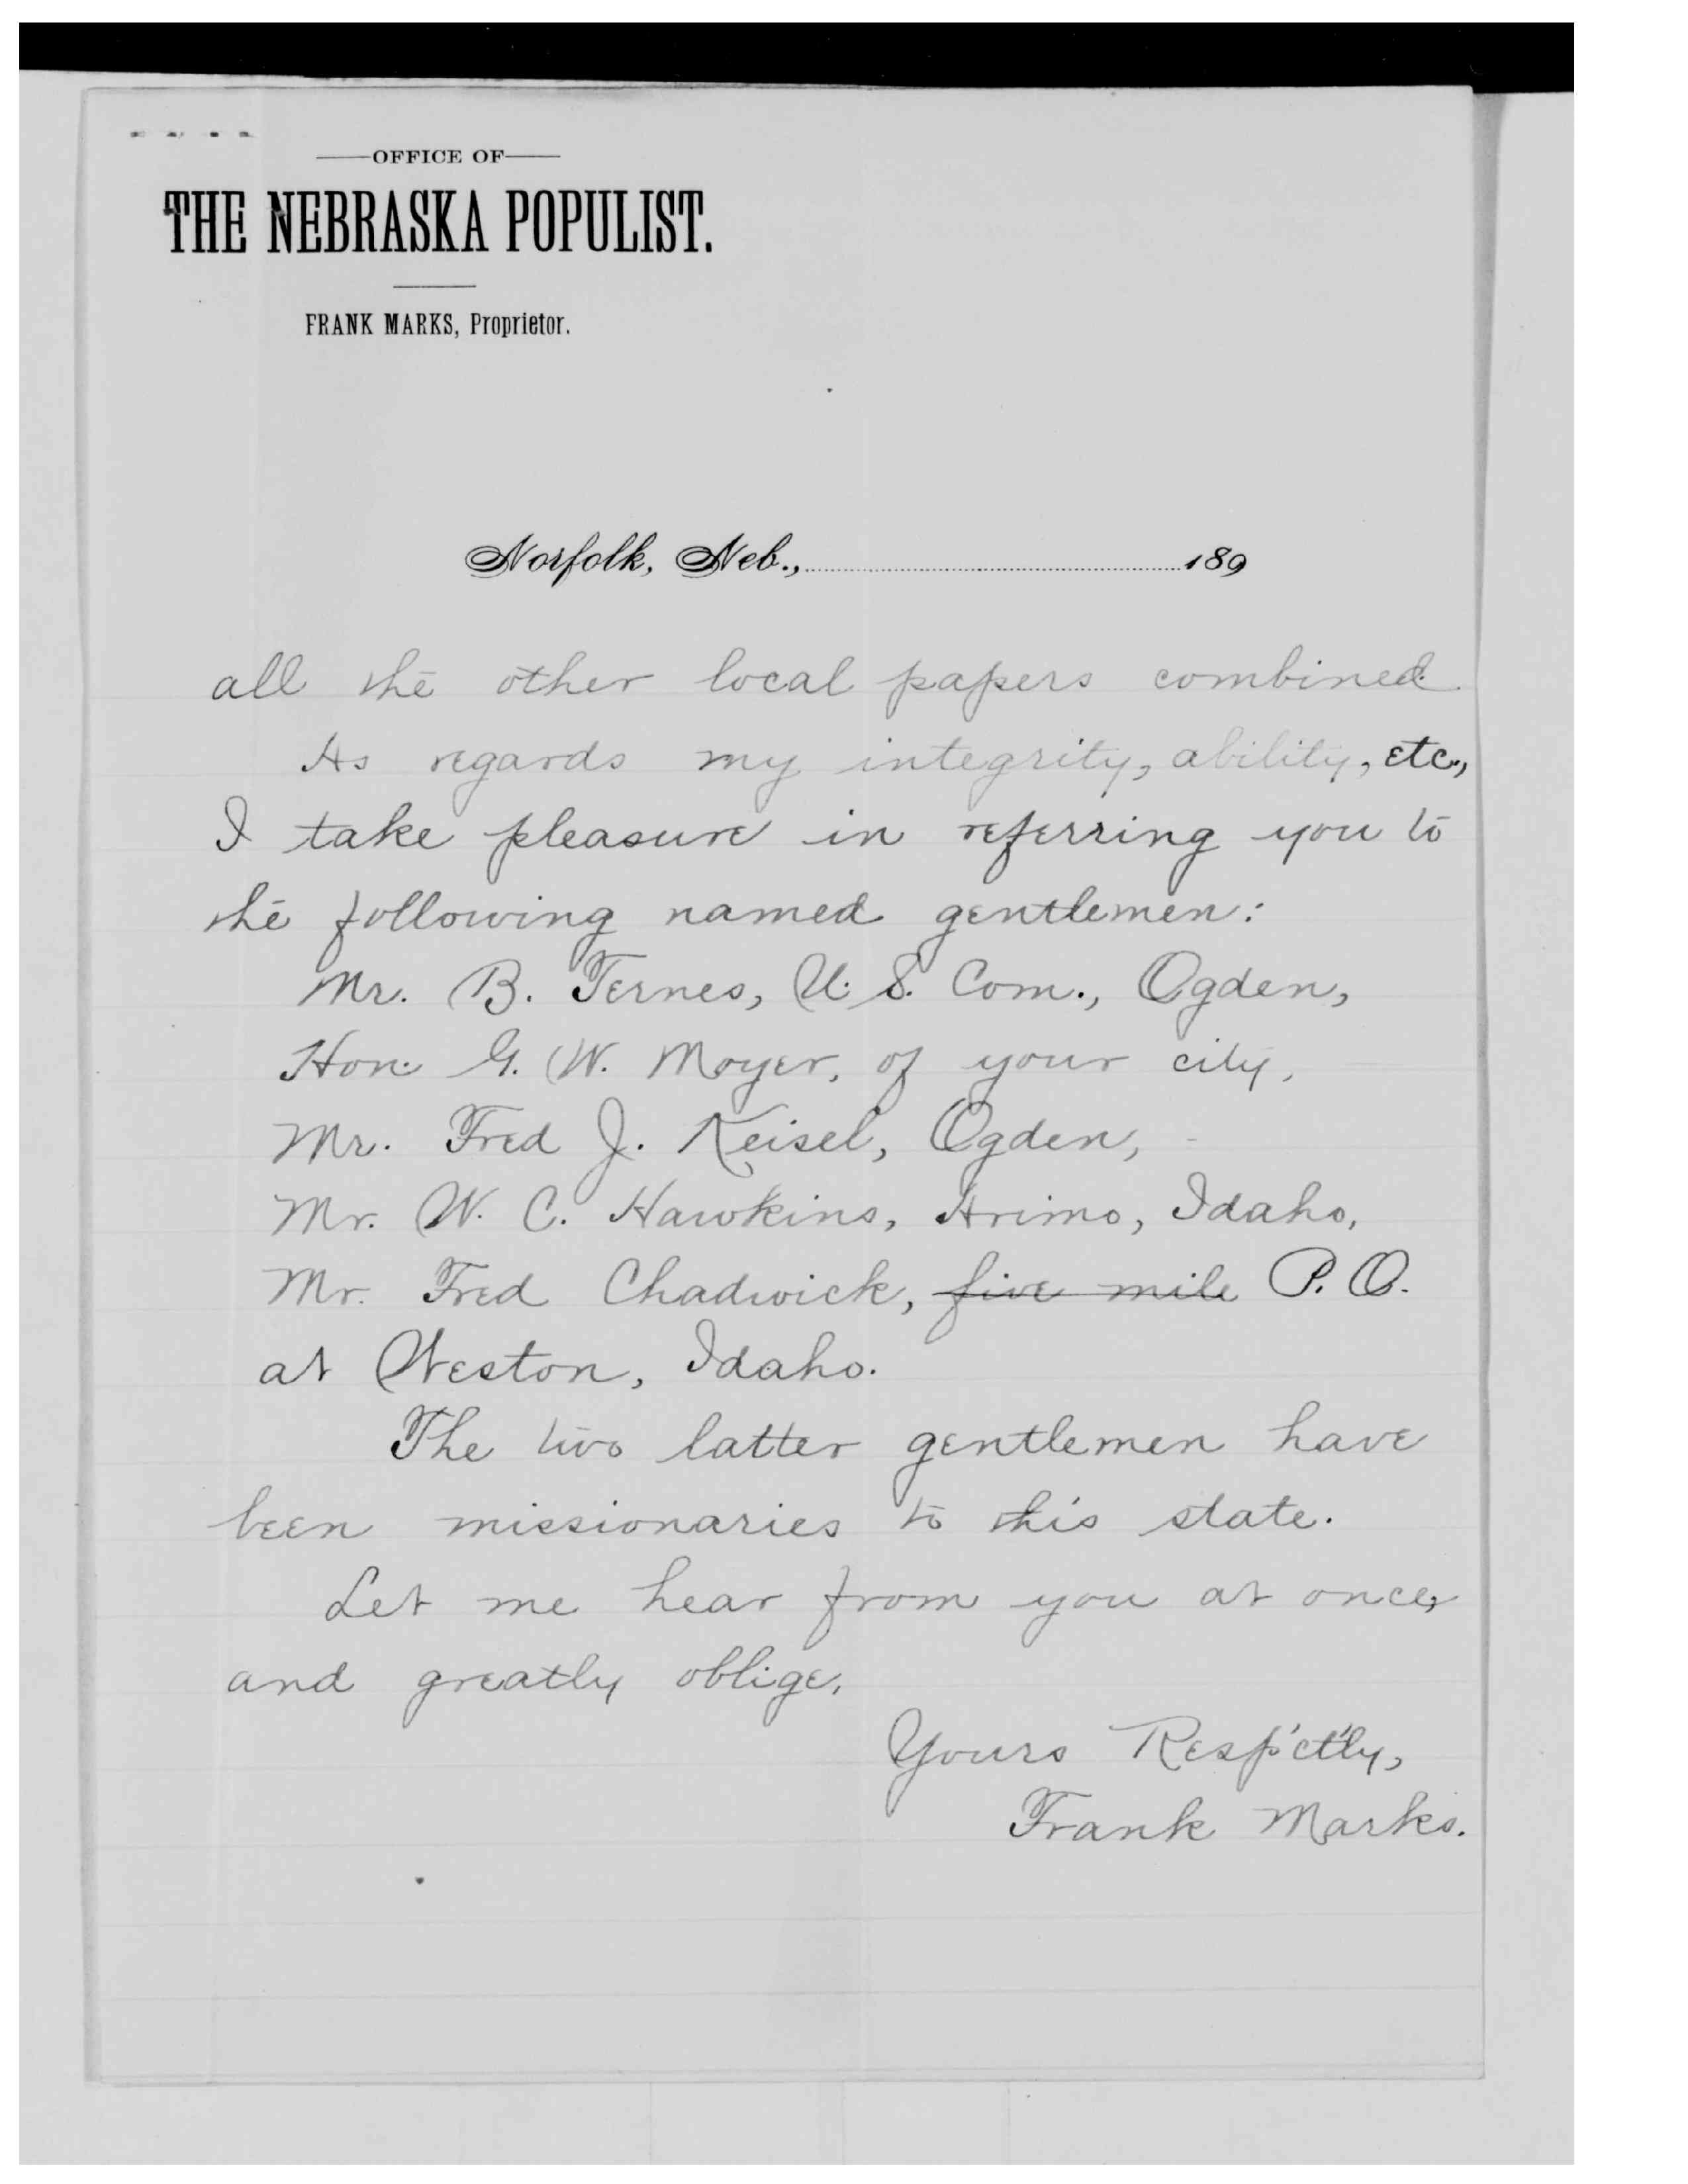 OFFICE OF
THE NEBRASKA POPULIST.
FRANK MARKS, Proprietor.
Norfolk, Neb., 189
all the other local papers combined.
As regards my integrity, ability, etc.,
I take pleasure in referring you to
the following named gentlemen:
Mr. B. Ternes, U. S. Com., Ogden,
Hon. G. W. Moyer, of your city,
Mr. Fred J. Keisel, Ogden,
Mr. W. C. Hawkins, Arimo, Idaho,
Mr. Fred Chadwick, five mile P. O.
at Weston, Idaho.
The two latter gentlemen have
been missionaries to this state.
Let me hear from you at once,
and greatly oblige,
Yours Resp'ct'ly,
Frank Marks.